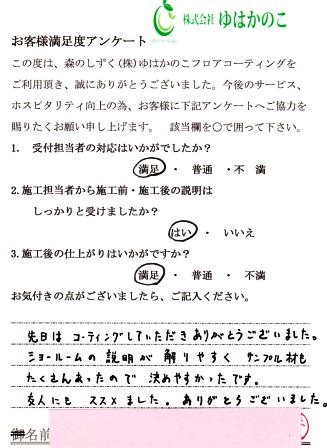 株式会社 ゆはかのこ
お客様満足度アンケート
この度は、森のしずく(株)ゆはかのこフロアコーティングを
ご利用頂き、誠にありがとうございました。今後のサービス、
ホスピタリティ向上の為、お客様に下記アンケートへご協力を
賜りたくお願い申し上げます。 該当欄を○で囲って下さい。
1. 受付担当者の対応はいかがでしたか?
満足 ・ 普通 ・不 満
2.施工担当者から施工前・施工後の説明は
しっかりと受けましたか?
はい ・ いいえ
3.施工後の仕上がりはいかがですか?
満足 ・ 普通 ・ 不満
お気付きの点がございましたら、ご記入ください。
先日は コーティングしていただき ありがとうございました。
ショールームの 説明が 解りやすく サンプル材も
たくさんあったので 決めやすかったです。
友人にも ススメました。ありがとうございました。
御名前